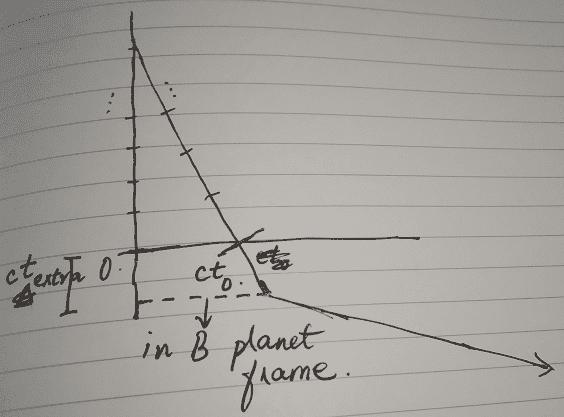 ct extra
0.
ct0.
in B planet
frame.